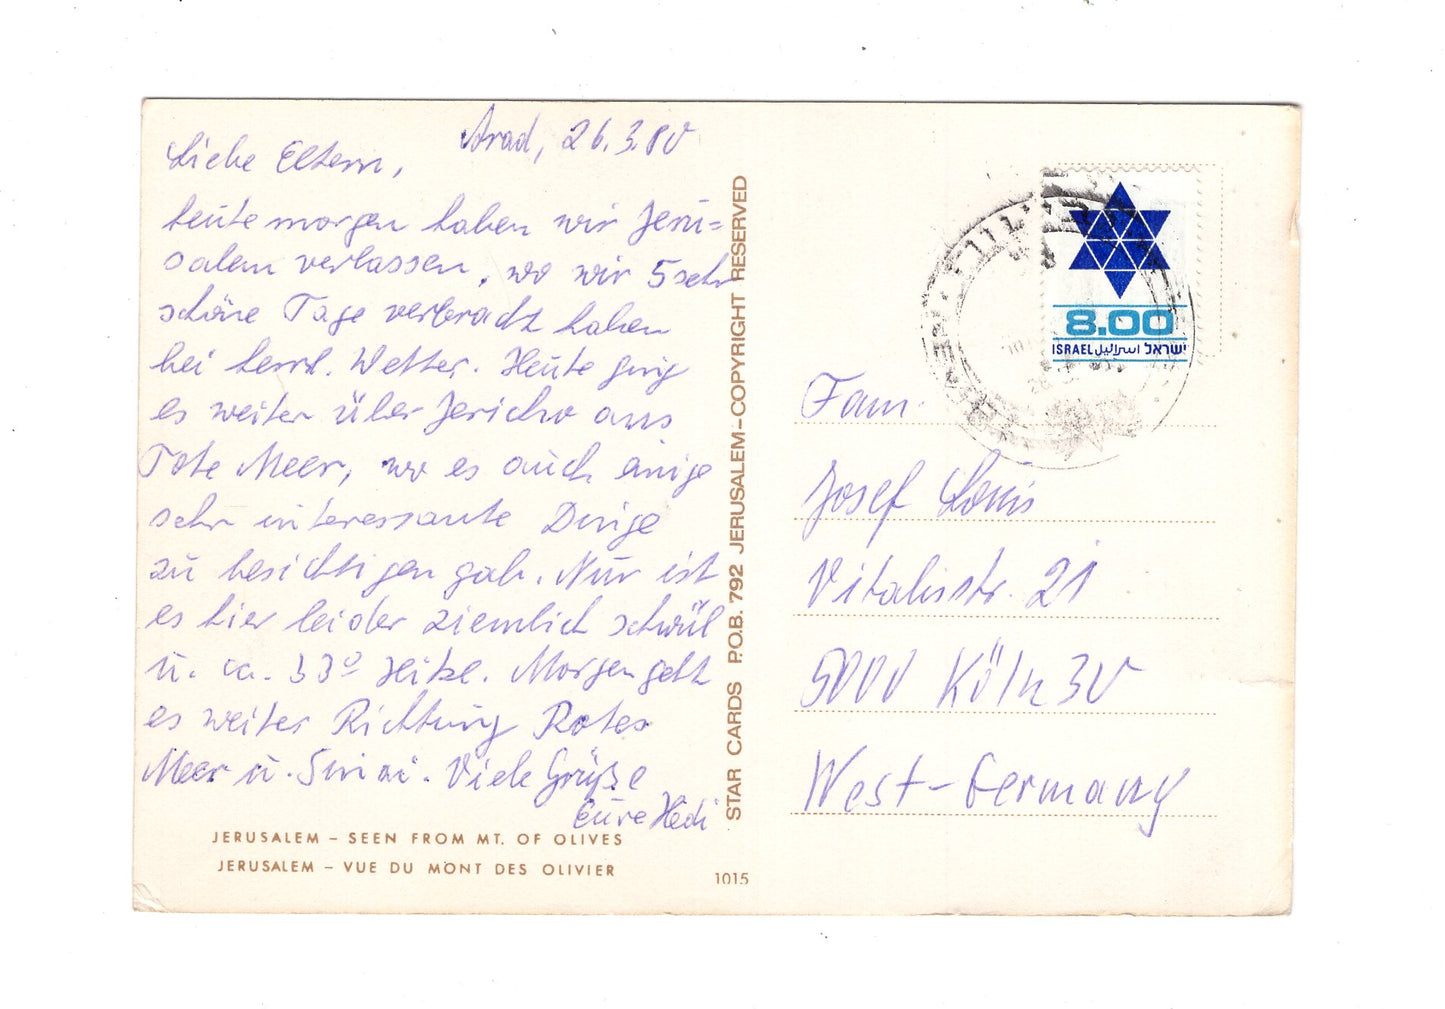 Arad, 26.3.80
Liebe Eltern,
heute morgen haben wir Jeru=
salem verlassen, wo wir 5 sehr
schöne Tage verbracht haben
bei herrl. Wetter. Heute ging
es weiter über Jericho ans
Tote Meer, wo es auch einige
sehr interessante Dinge
zu besichtigen gab. Nur ist
es hier leider ziemlich schwül
u. ca. 33° Hitze. Morgen geht
es weiter Richtung Rotes
Meer u. Sinai. Viele Grüße
Eure Hedi
JERUSALEM – SEEN FROM MT. OF OLIVES
JERUSALEM – VUE DU MONT DES OLIVIER
1015
STAR CARDS P.O.B. 792 JERUSALEM–COPYRIGHT RESERVED
8.00
ISRAEL اسرائيل ישראל
Fam.
Josef Louis
Vitalisstr. 21
5000 Köln 30
West-Germany